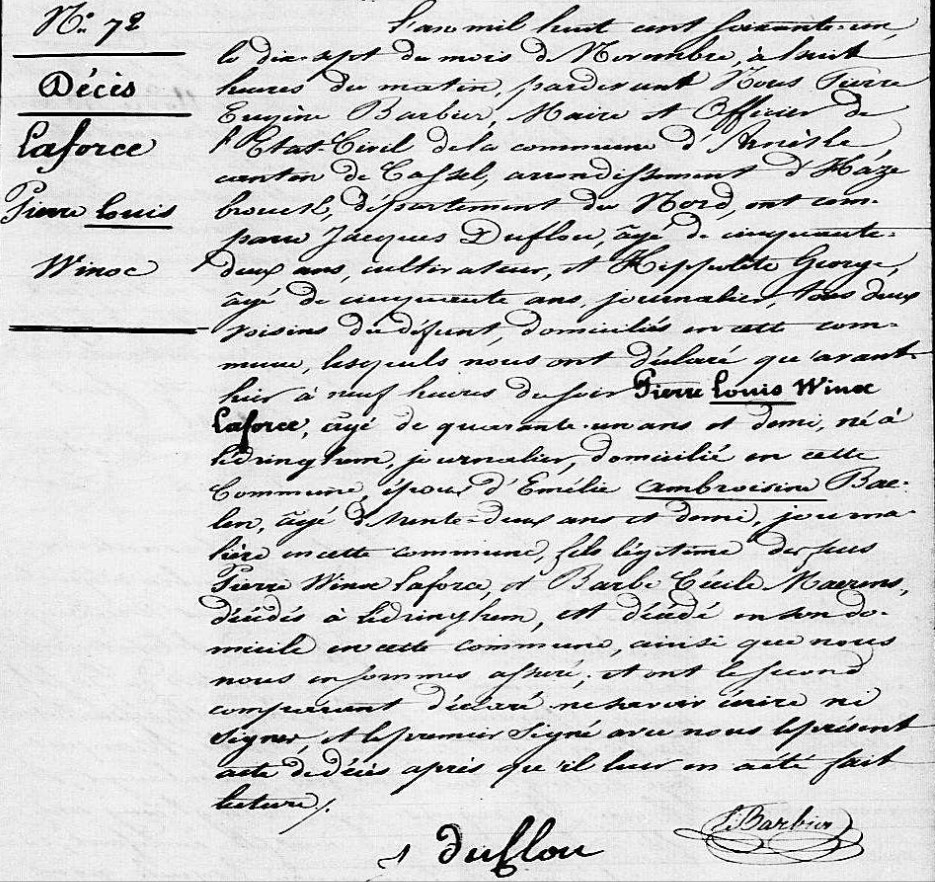 N.° 72
Décès
Laforce
Pierre Louis
Winoc
L'an mil huit cent soixante-un,
le dix-sept du mois de Novembre, à huit
heures du matin, pardevant Nous Pierre
Eugène Barbier, Maire et Officier de
l'Etat-Civil de la commune d'Arnèke
canton de Cassel, arrondissement d'Haze
brouck, département du Nord, ont com-
paru Jacques Duflou, âgé de cinquante-
deux ans, cultivateur, et Hippolite George,
âgé de cinquante ans, journalier, tous deux
voisins du défunt, domiciliés en cette com-
mune, lesquels nous ont déclaré qu'avant
hier à neuf heures du soir Pierre Louis Winoc
Laforce, âgé de quarante-un ans et demi, né à
Lédringhem, journalier, domicilié en cette
Commune, époux d'Emélie Ambroisine Bae-
len, âgé de trente-deux ans et demi, journa-
lière en cette commune, fils légitime des feus
Pierre Winoc Laforce, et Barbe Cécile Maerens,
décédés à Lédringhem, est décédé en son do-
micile en cette commune, ainsi que nous
nous en sommes assuré, et ont le second
comparant déclaré ne savoir écrire ni
signer, et le premier signé avec nous le présent
acte de décès après qu'il leur en a été fait
lecture ./.
j duflou
E Barbier